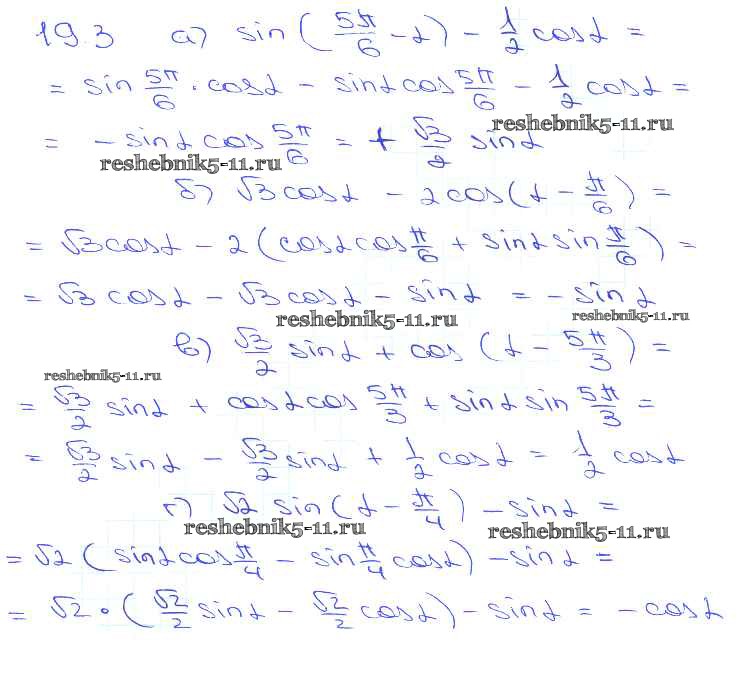 19.3 а) sin(5π/6 - α) - 1/2 cosα =
= sin 5π/6 · cosα - sinα cos 5π/6 - 1/2 cosα =
reshebnik5-11.ru
= - sinα cos 5π/6 = + √3/2 sinα
reshebnik5-11.ru
б) √3 cosα - 2 cos(α - π/6) =
= √3 cosα - 2(cosα cos π/6 + sinα sin π/6) =
= √3 cosα - √3 cosα - sinα = - sinα
reshebnik5-11.ru reshebnik5-11.ru
в) √3/2 sinα + cos(α - 5π/3) =
reshebnik5-11.ru
= √3/2 sinα + cosα cos 5π/3 + sinα sin 5π/3 =
= √3/2 sinα - √3/2 sinα + 1/2 cosα = 1/2 cosα
г) √2 sin(α - π/4) - sinα =
reshebnik5-11.ru reshebnik5-11.ru
= √2 (sinα cos π/4 - sin π/4 cosα) - sinα =
= √2 · (√2/2 sinα - √2/2 cosα) - sinα = - cosα